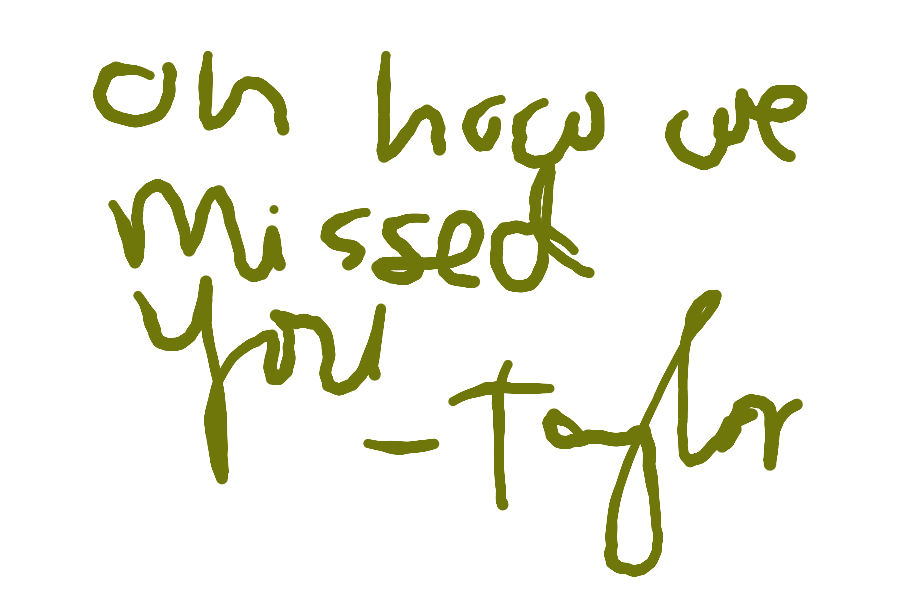 oh how we
missed
you
- Taylor